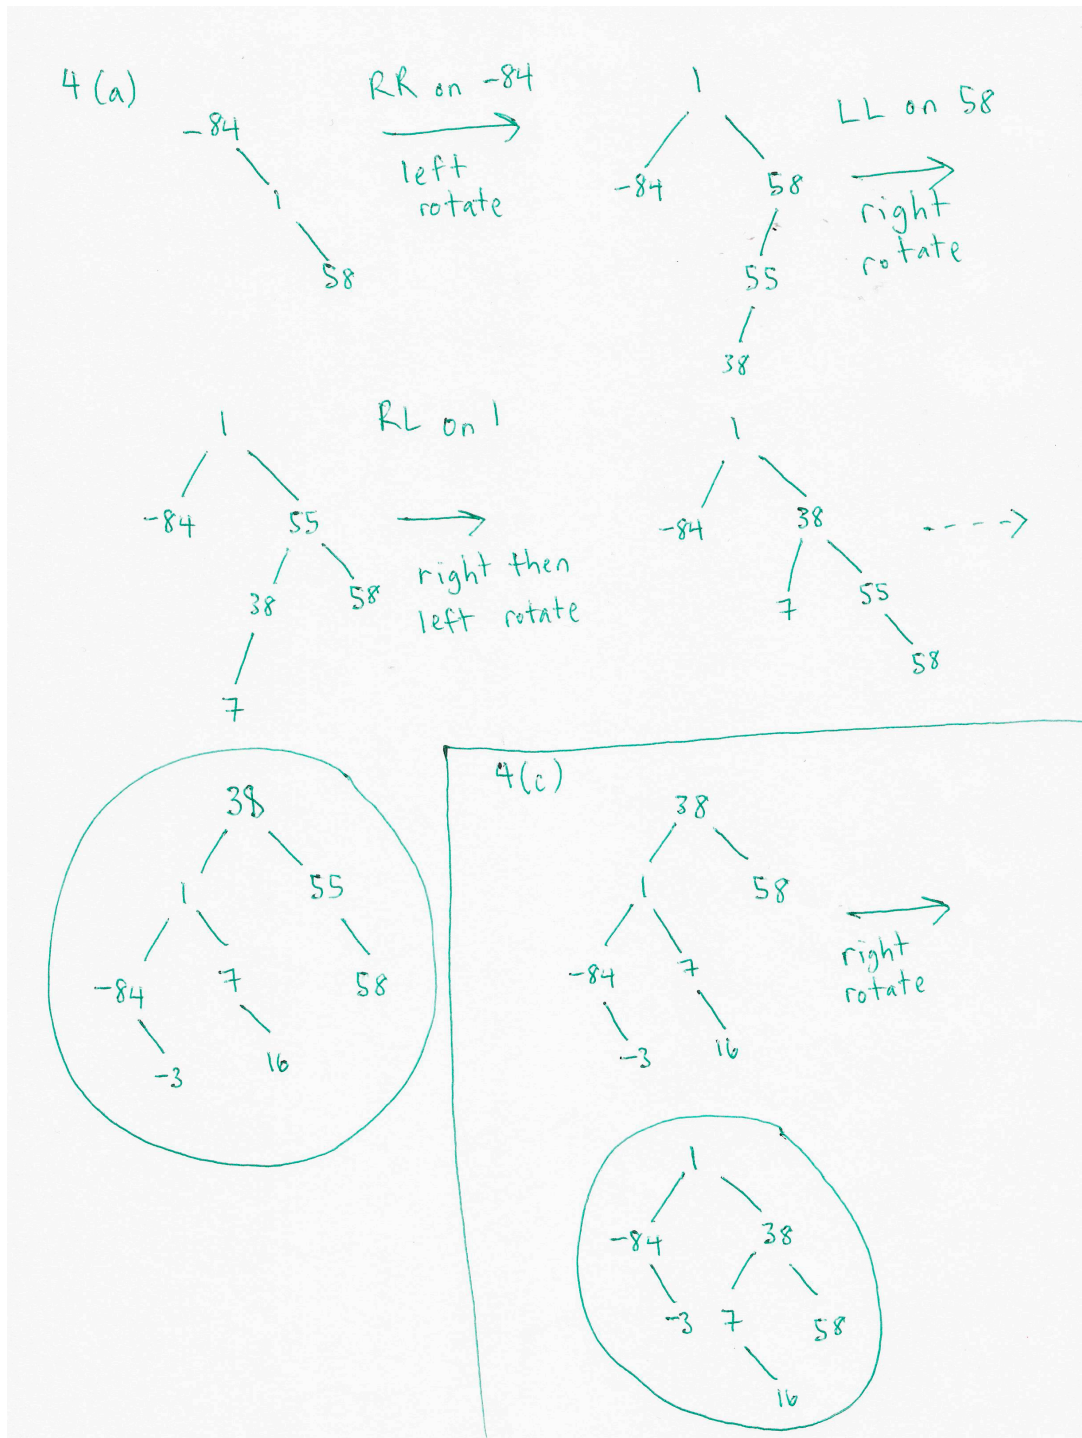 4 (a)
RR on -84
left
rotate
-84
1
58
1
-84 58
55
38
LL on 58
right
rotate
1
-84 55
38 58
7
RL on 1
right then
left rotate
1
-84 38
7 55
58
38
1 55
-84 7 58
-3 16
4(c)
38
1 58
-84 7
-3 16
right
rotate
1
-84 38
-3 7 58
16